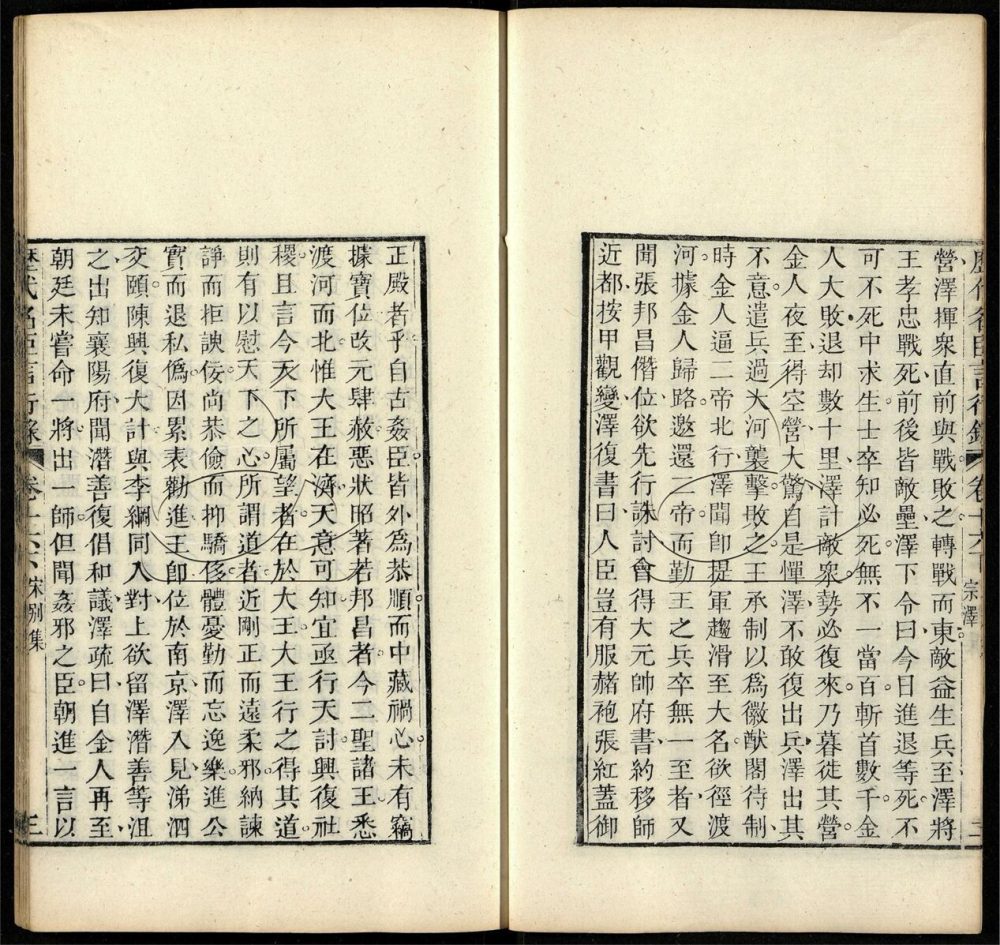 歷代名臣言行錄 卷十六 宗澤 三
營澤揮衆直前與戰敗之轉戰而東敵益生兵至澤將
王孝忠戰死前後皆敵壘澤下令曰今日進退等死不
可不死中求生士卒知必死無不一當百斬首數千金
人大敗退却數十里澤計敵衆勢必復來乃暮徙其營
金人夜至得空營大驚自是憚澤不敢復出兵澤出其
不意遣兵過大河襲擊敗之王承制以爲徽猷閣待制
時金人逼二帝北行澤聞卽提軍趨滑至大名欲徑渡
河據金人歸路邀還二帝而勤王之兵卒無一至者又
聞張邦昌僭位欲先行誅討會得大元帥府書約移師
近都按甲觀變澤復書曰人臣豈有服赭袍張紅蓋御
正殿者乎自古姦臣皆外爲恭順而中藏禍心未有竊
據寶位改元肆赦惡狀昭著若邦昌者今二聖諸王悉
渡河而北惟大王在濟天意可知宜亟行天討興復社
稷且言今天下所屬望者在於大王大王行之得其道
則有以慰天下之心所謂道者近剛正而遠柔邪納諫
諍而拒諛佞尚恭儉而抑驕侈體憂勤而忘逸樂進公
實而退私僞因累表勸進王卽位於南京澤入見涕泗
交頤陳興復大計與李綱同入對上欲留澤潛善等沮
之出知襄陽府聞潛善復倡和議澤疏曰自金人再至
朝廷未嘗命一將出一師但聞姦邪之臣朝進一言以
歷代名臣言行錄 卷十六 宋別集 三